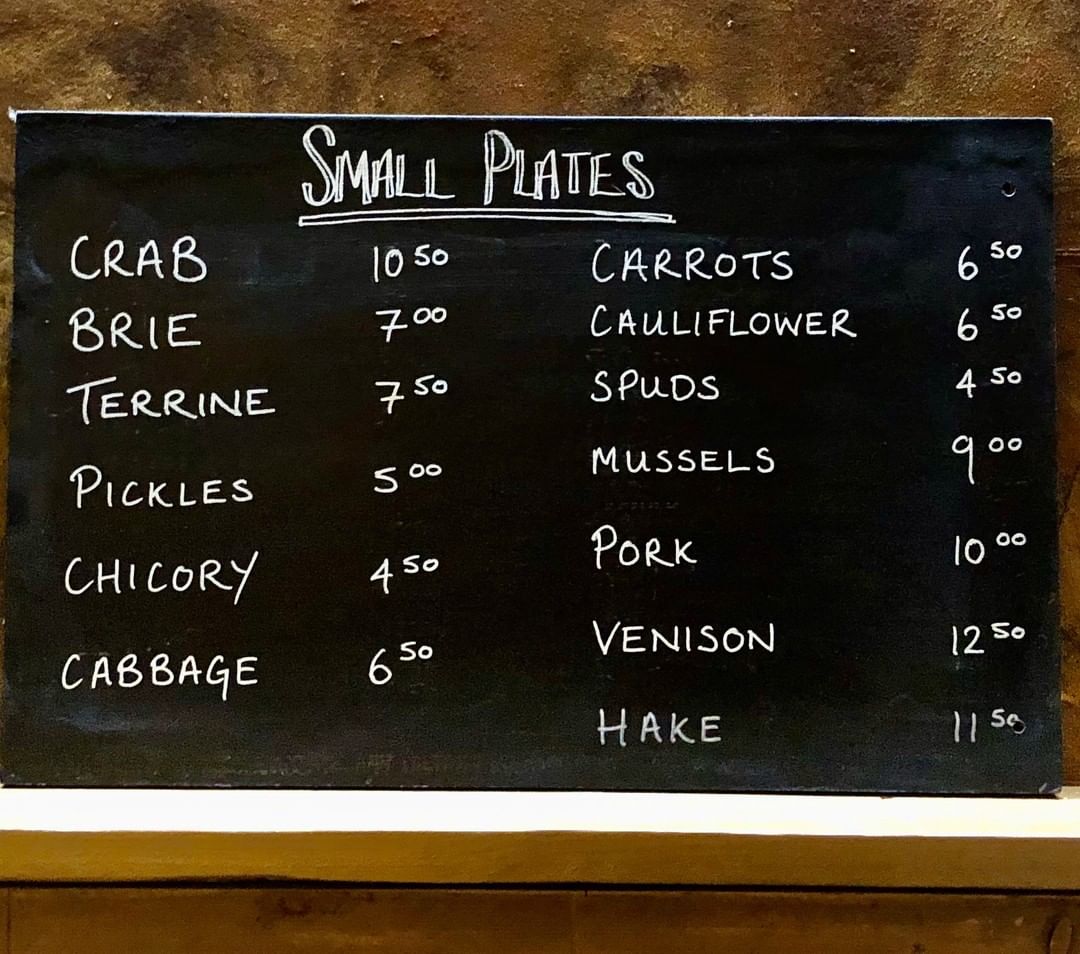 SMALL PLATES
CRAB 10 50
BRIE 7 00
TERRINE 7 50
PICKLES 5 00
CHICORY 4 50
CABBAGE 6 50
CARROTS 6 50
CAULIFLOWER 6 50
SPUDS 4 50
MUSSELS 9 00
PORK 10 00
VENISON 12 50
HAKE 11 50